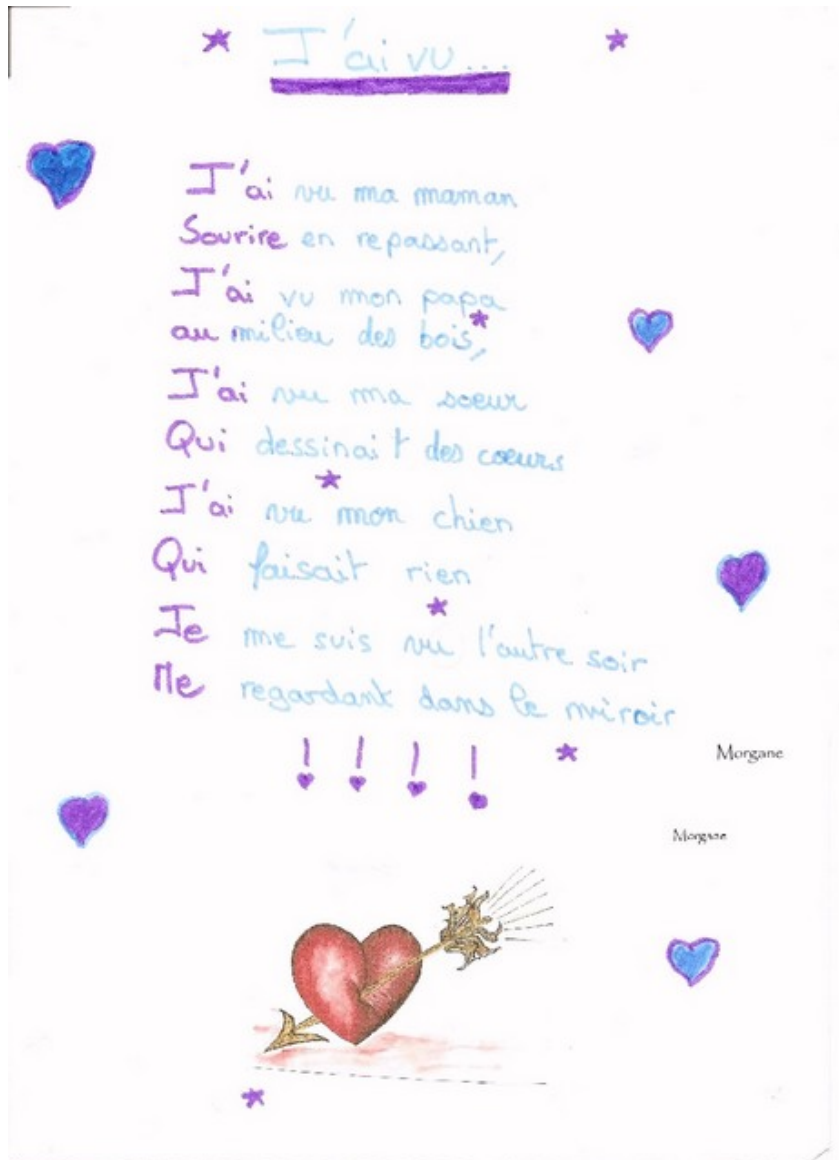 J'ai vu...
J'ai vu ma maman
Sourire en repassant,
J'ai vu mon papa
au milieu des bois,
J'ai vu ma soeur
Qui dessinait des coeurs
J'ai vu mon chien
Qui faisait rien
Je me suis vu l'autre soir
Me regardant dans le miroir
! ! ! !
Morgane
Morgane